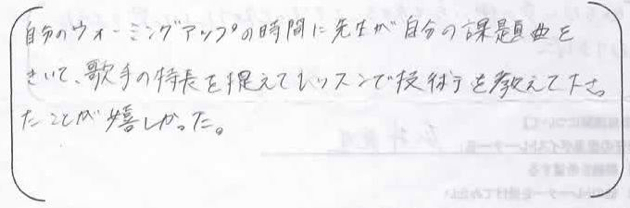 自分のウォーミングアップの時間に先生が自分の課題曲を
きいて、歌手の特長を捉えてレッスンで技術を教えて下さっ
たことが嬉しかった。